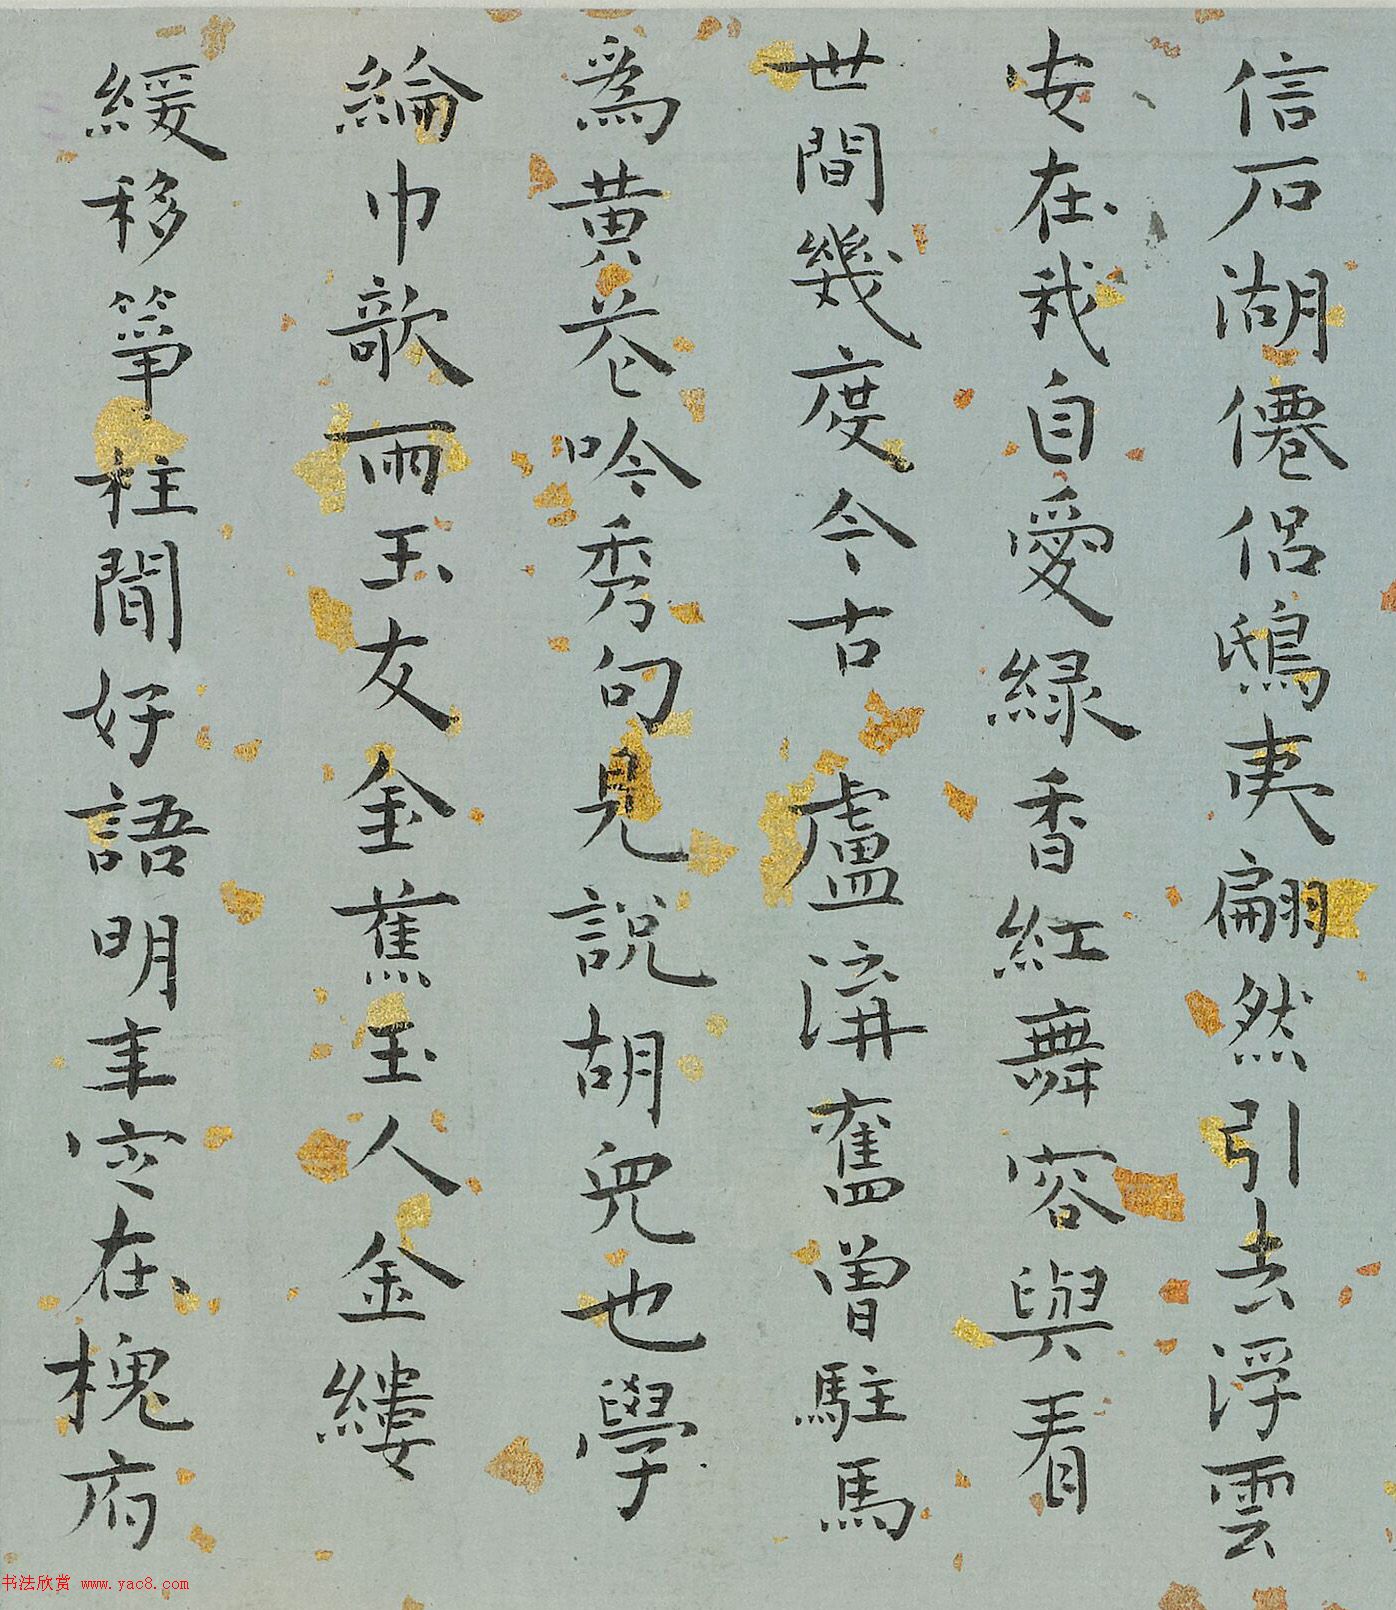 信石湖僊侣鴟夷翩然引去浮雲
安在我自愛緑香紅舞容與看
世間幾度今古 盧溝舊曾駐馬
爲黄卷吟秀句見説胡兒也學
綸巾欹雨玉友金蕉玉人金縷
緩移箏柱聞好語明年定在槐府
书法欣赏 www.yac8.com